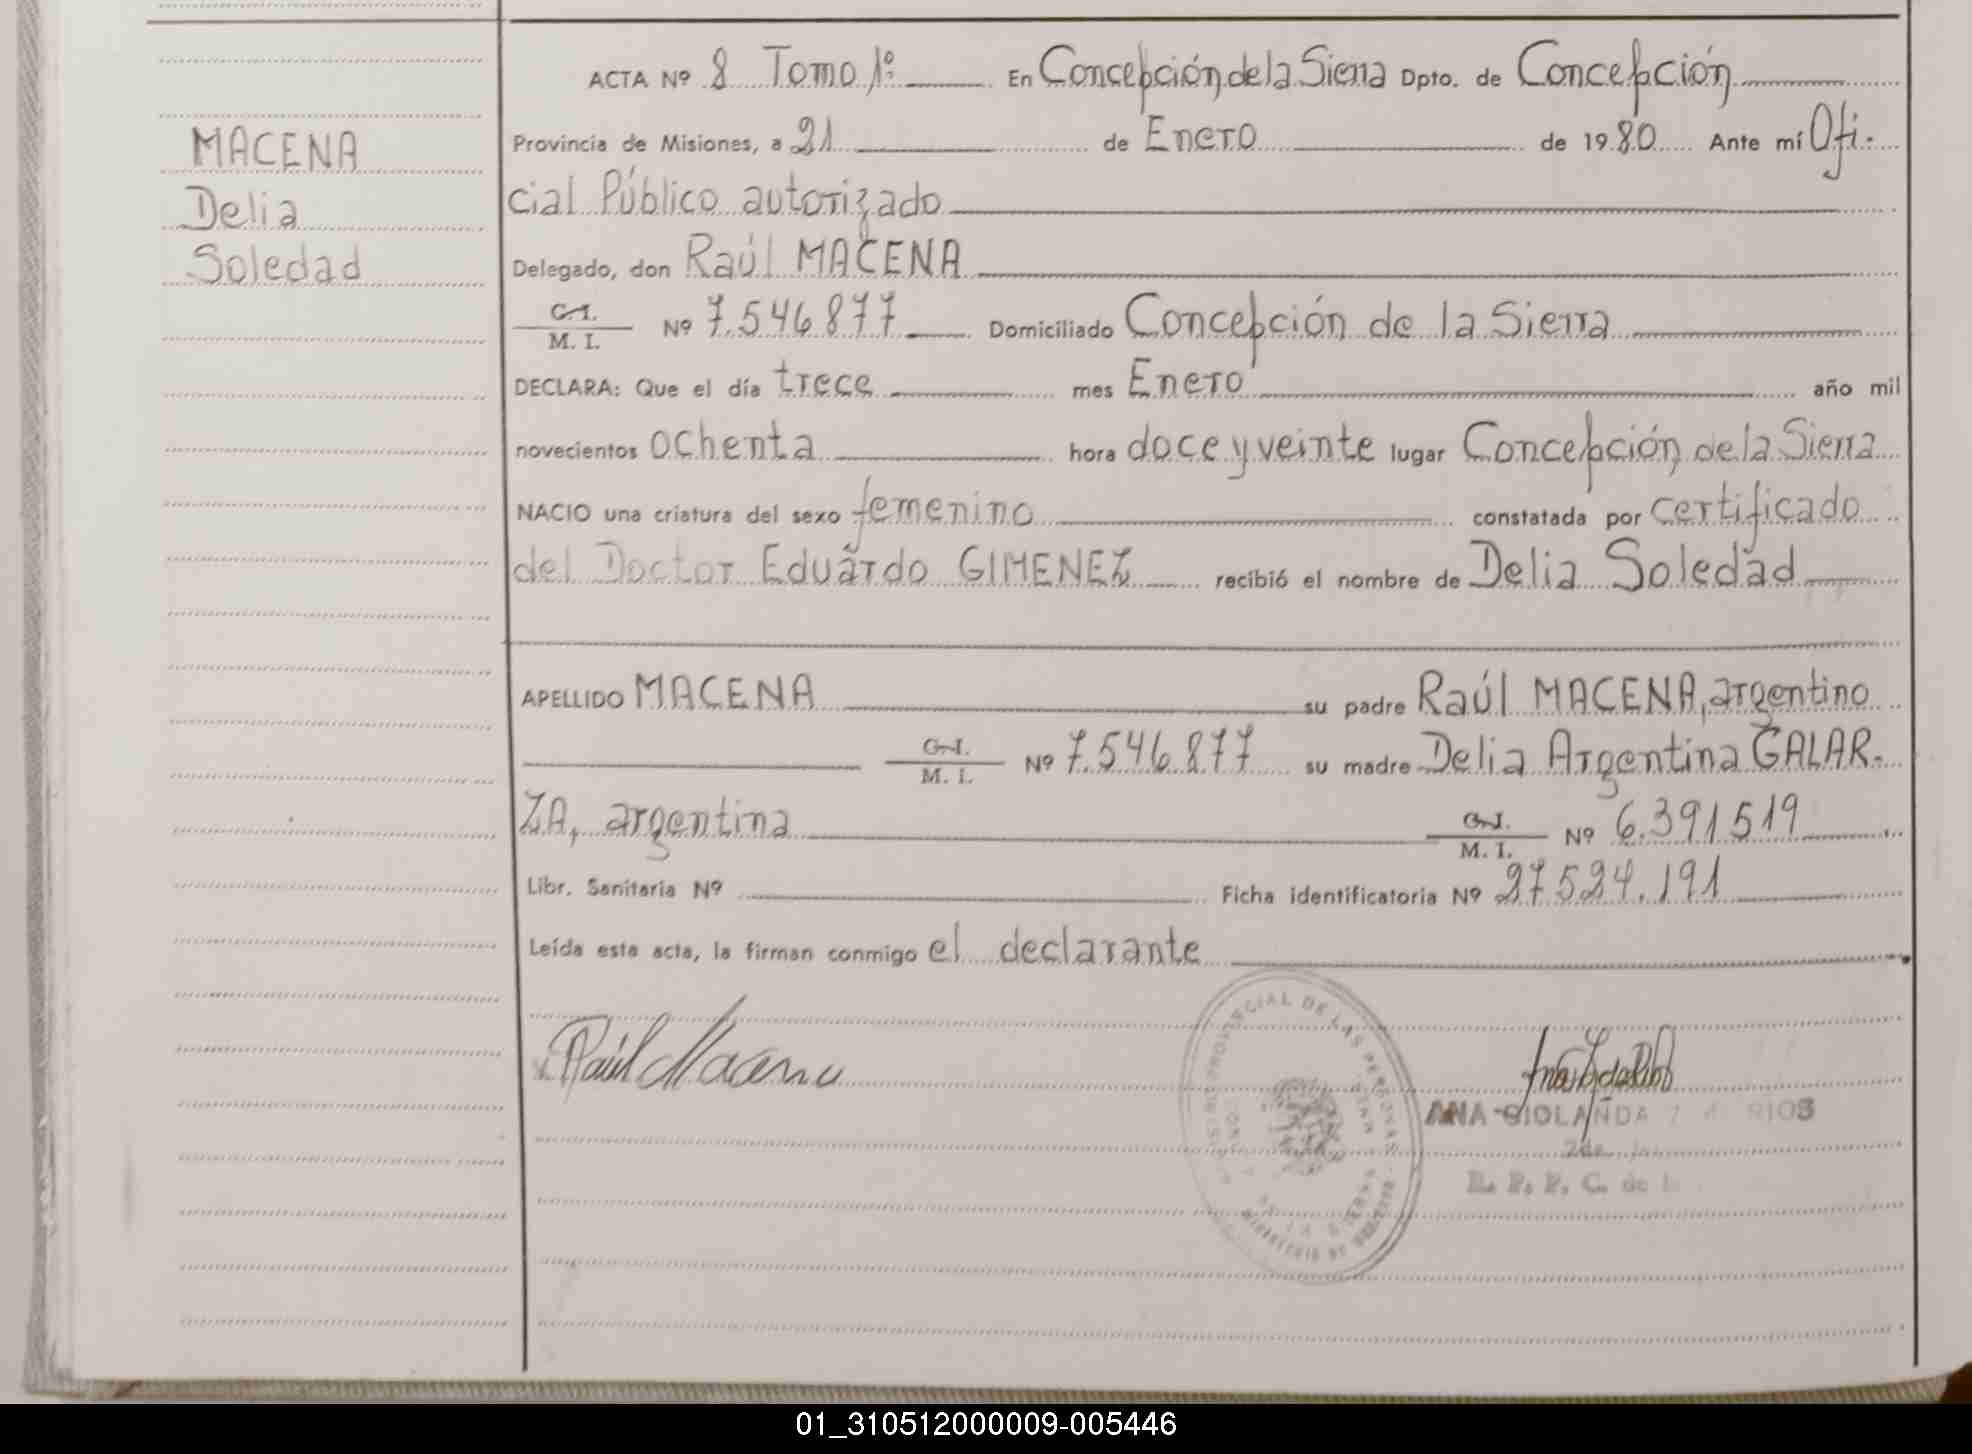 ACTA Nº 8 Tomo 1º En Concepción de la Sierra Dpto. de Concepción
MACENA
Delia
Soledad
Provincia de Misiones, a 21 de Enero de 1980 Ante mí Ofi-
cial Público autorizado
Delegado, don Raúl MACENA
C.I. M. I. Nº 7.546.877 Domiciliado Concepción de la Sierra
DECLARA: Que el día trece mes Enero año mil
novecientos ochenta hora doce y veinte lugar Concepción de la Sierra
NACIO una criatura del sexo femenino constatada por certificado
del Doctor Eduardo GIMENEZ recibió el nombre de Delia Soledad
APELLIDO MACENA su padre Raúl MACENA, argentino
C.I. M. I. Nº 7.546.877 su madre Delia Argentina GALAR-
ZA, argentina C.I. M. I. Nº 6.391519
Libr. Sanitaria Nº Ficha identificatoria Nº 27524.191
Leída esta acta, la firman conmigo el declarante
Raúl Macena
PROVINCIAL DE LAS PERSONAS
DE LA SIERRA
ANA GIOLANDA RIOS
01_310512000009-005446